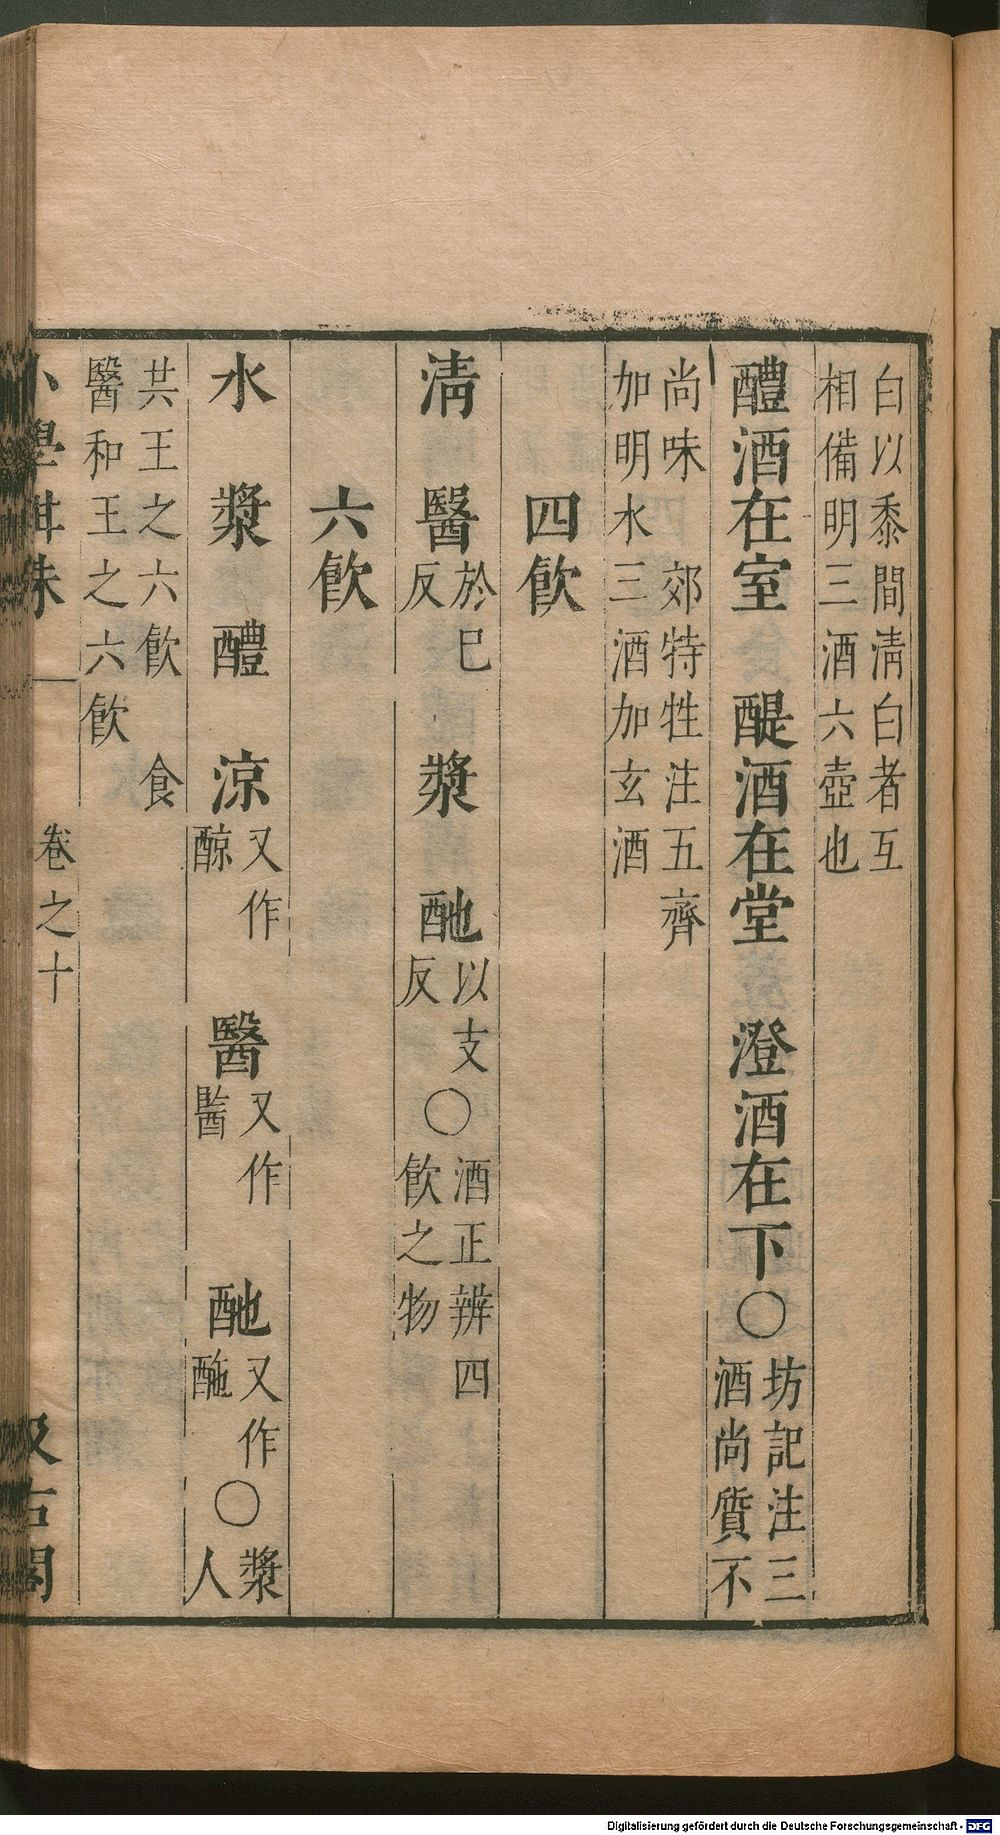 白以黍間淸白者互
相備明三酒六壺也
醴酒在室　醍酒在堂　澄酒在下〇坊記注三
酒尚質不
尚味　郊特牲注五齊
加明水三酒加玄酒
四飮
淸　醫於巳
反　漿　酏以支
反〇酒正辨四
飮之物
六飮
水　漿　醴　涼又作
䣼　醫又作
毉　酏又作
酏〇漿
人
共王之六飮　食
醫和王之六飮
小學紺珠　卷之十　汲古閣
Digitalisierung gefördert durch die Deutsche Forschungsgemeinschaft - DFG